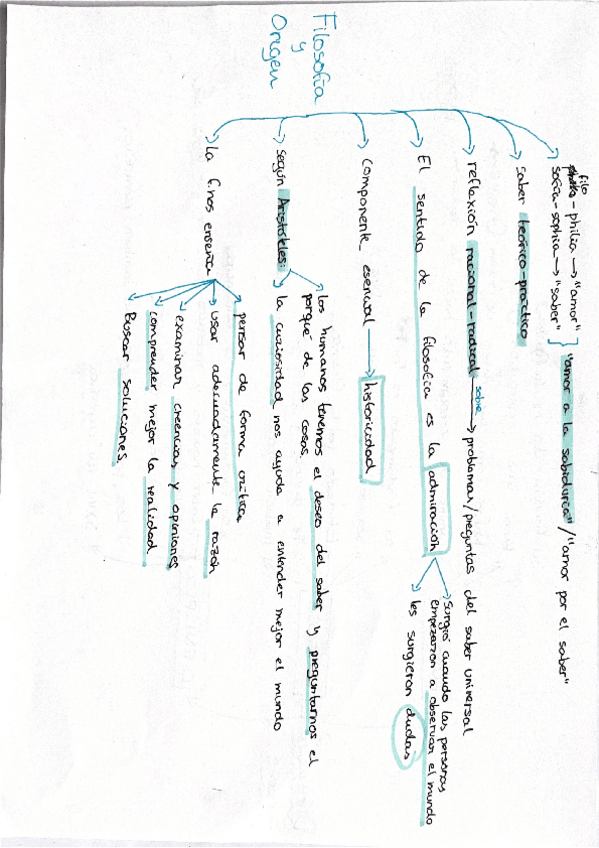 Filosofía
y
Origen
filo
philia - philia → "amor"
sofia - sophia → "saber"
"amor a la sabiduría" / "amor por el saber"
saber teórico-práctico
reflexión racional-radical
sobre
problemas/preguntas del saber universal
El sentido de la filosofía es la admiración
surgió cuando las personas
empezaron a observar el mundo
les surgieron dudas
componente esencial → historicidad
según Aristóteles:
los humanos tenemos el deseo del saber y preguntarnos el
porqué de las cosas.
la curiosidad nos ayuda a entender mejor el mundo
la f. nos enseña
pensar de forma crítica
usar adecuadamente la razón
examinar creencias y opiniones
comprender mejor la realidad
Buscar soluciones.